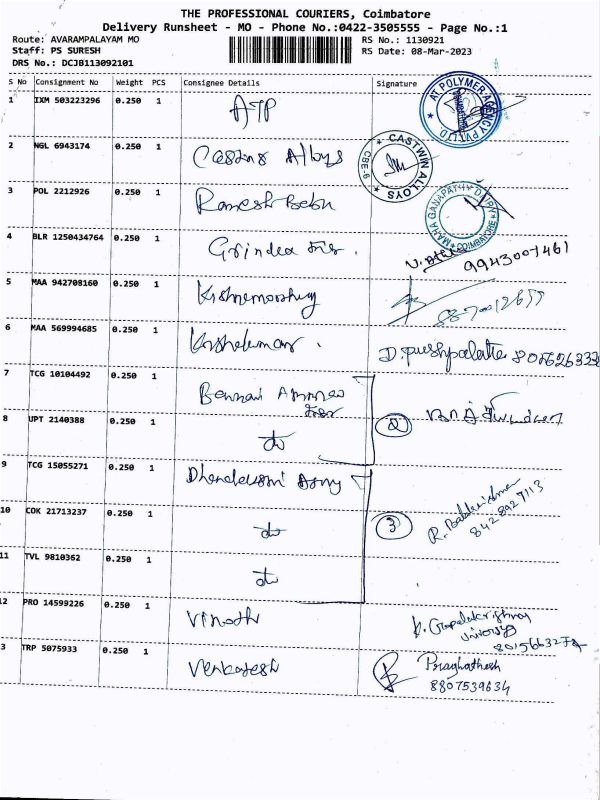 THE PROFESSIONAL COURIERS, Coimbatore
Delivery Runsheet - MO - Phone No.:0422-3505555 - Page No.:1
Route: AVARAMPALAYAM MO RS No.: 1130921
Staff: PS SURESH RS Date: 08-Mar-2023
DRS No.: DCJB113092101
S No Consignment No Weight PCS Consignee Details Signature
1 IXM 503223296 0.250 1 ATP AT POLYMER AGENCY PVT LTD
2 NGL 6943174 0.250 1 Alloys CASTWIN ALLOYS CBE-6
3 POL 2212926 0.250 1 Ramesh Babu MAHA GANAPATHY COIMBATORE
4 BLR 1250434764 0.250 1 Grindea 9943007461
5 MAA 942708160 0.250 1 Krishnamoorthy
6 MAA 569994685 0.250 1 Krishakumar. D. pushpalatha
7 TCG 10104492 0.250 1 Bennari
8 UPT 2140388 0.250 1 do 2
9 TCG 15055271 0.250 1
10 COK 21713237 0.250 1 do 3 R. Balakrishnan 8428927113
11 TVL 9810362 0.250 1 do
12 PRO 14599226 0.250 1 Vinoth K. Gopalakrishnan
3 TRP 5075933 0.250 1 Venkatesh Praghathesh
8807539634